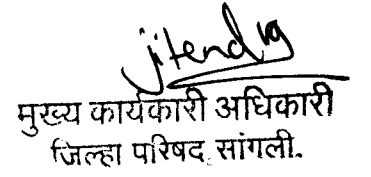 jitendra
मुख्य कार्यकारी अधिकारी
जिल्हा परिषद, सांगली.